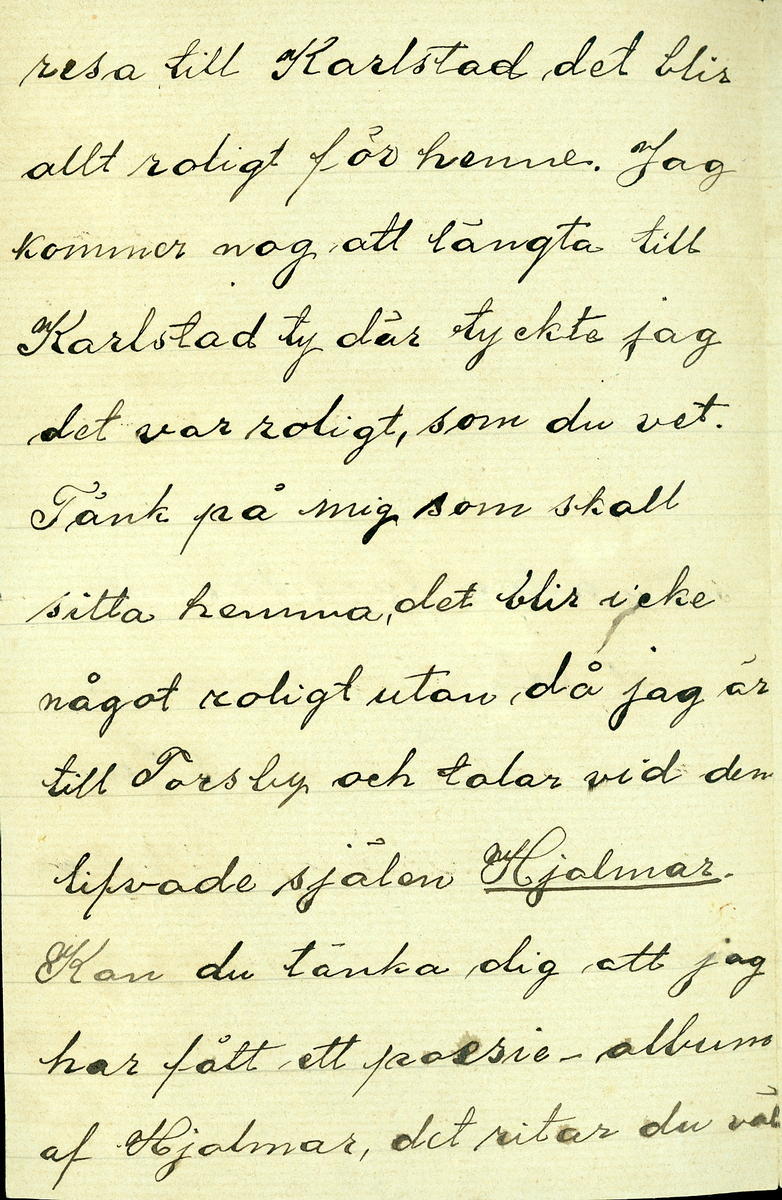 resa till Karlstad det blir
allt roligt för henne. Jag
kommer nog att längta till
Karlstad ty där tyckte jag
det var roligt, som du vet.
Tänk på mig som skall
sitta hemma, det blir icke
något roligt utan då jag är
till Torsby och talar vid den
lifvade själen Hjalmar.
Kan du tänka dig att jag
har fått ett poesie-album
af Hjalmar, det ritar du väl